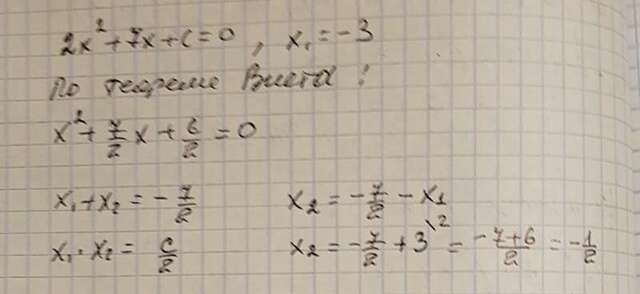 2x²+7x+c=0, x₁=-3
По теореме Виета:
x²+7/2 x+6/2=0
x₁+x₂=-7/2 x₂=-7/2-x₁
x₁·x₂=c/2 x₂=-7/2+3\²=(-7+6)/2=-1/2